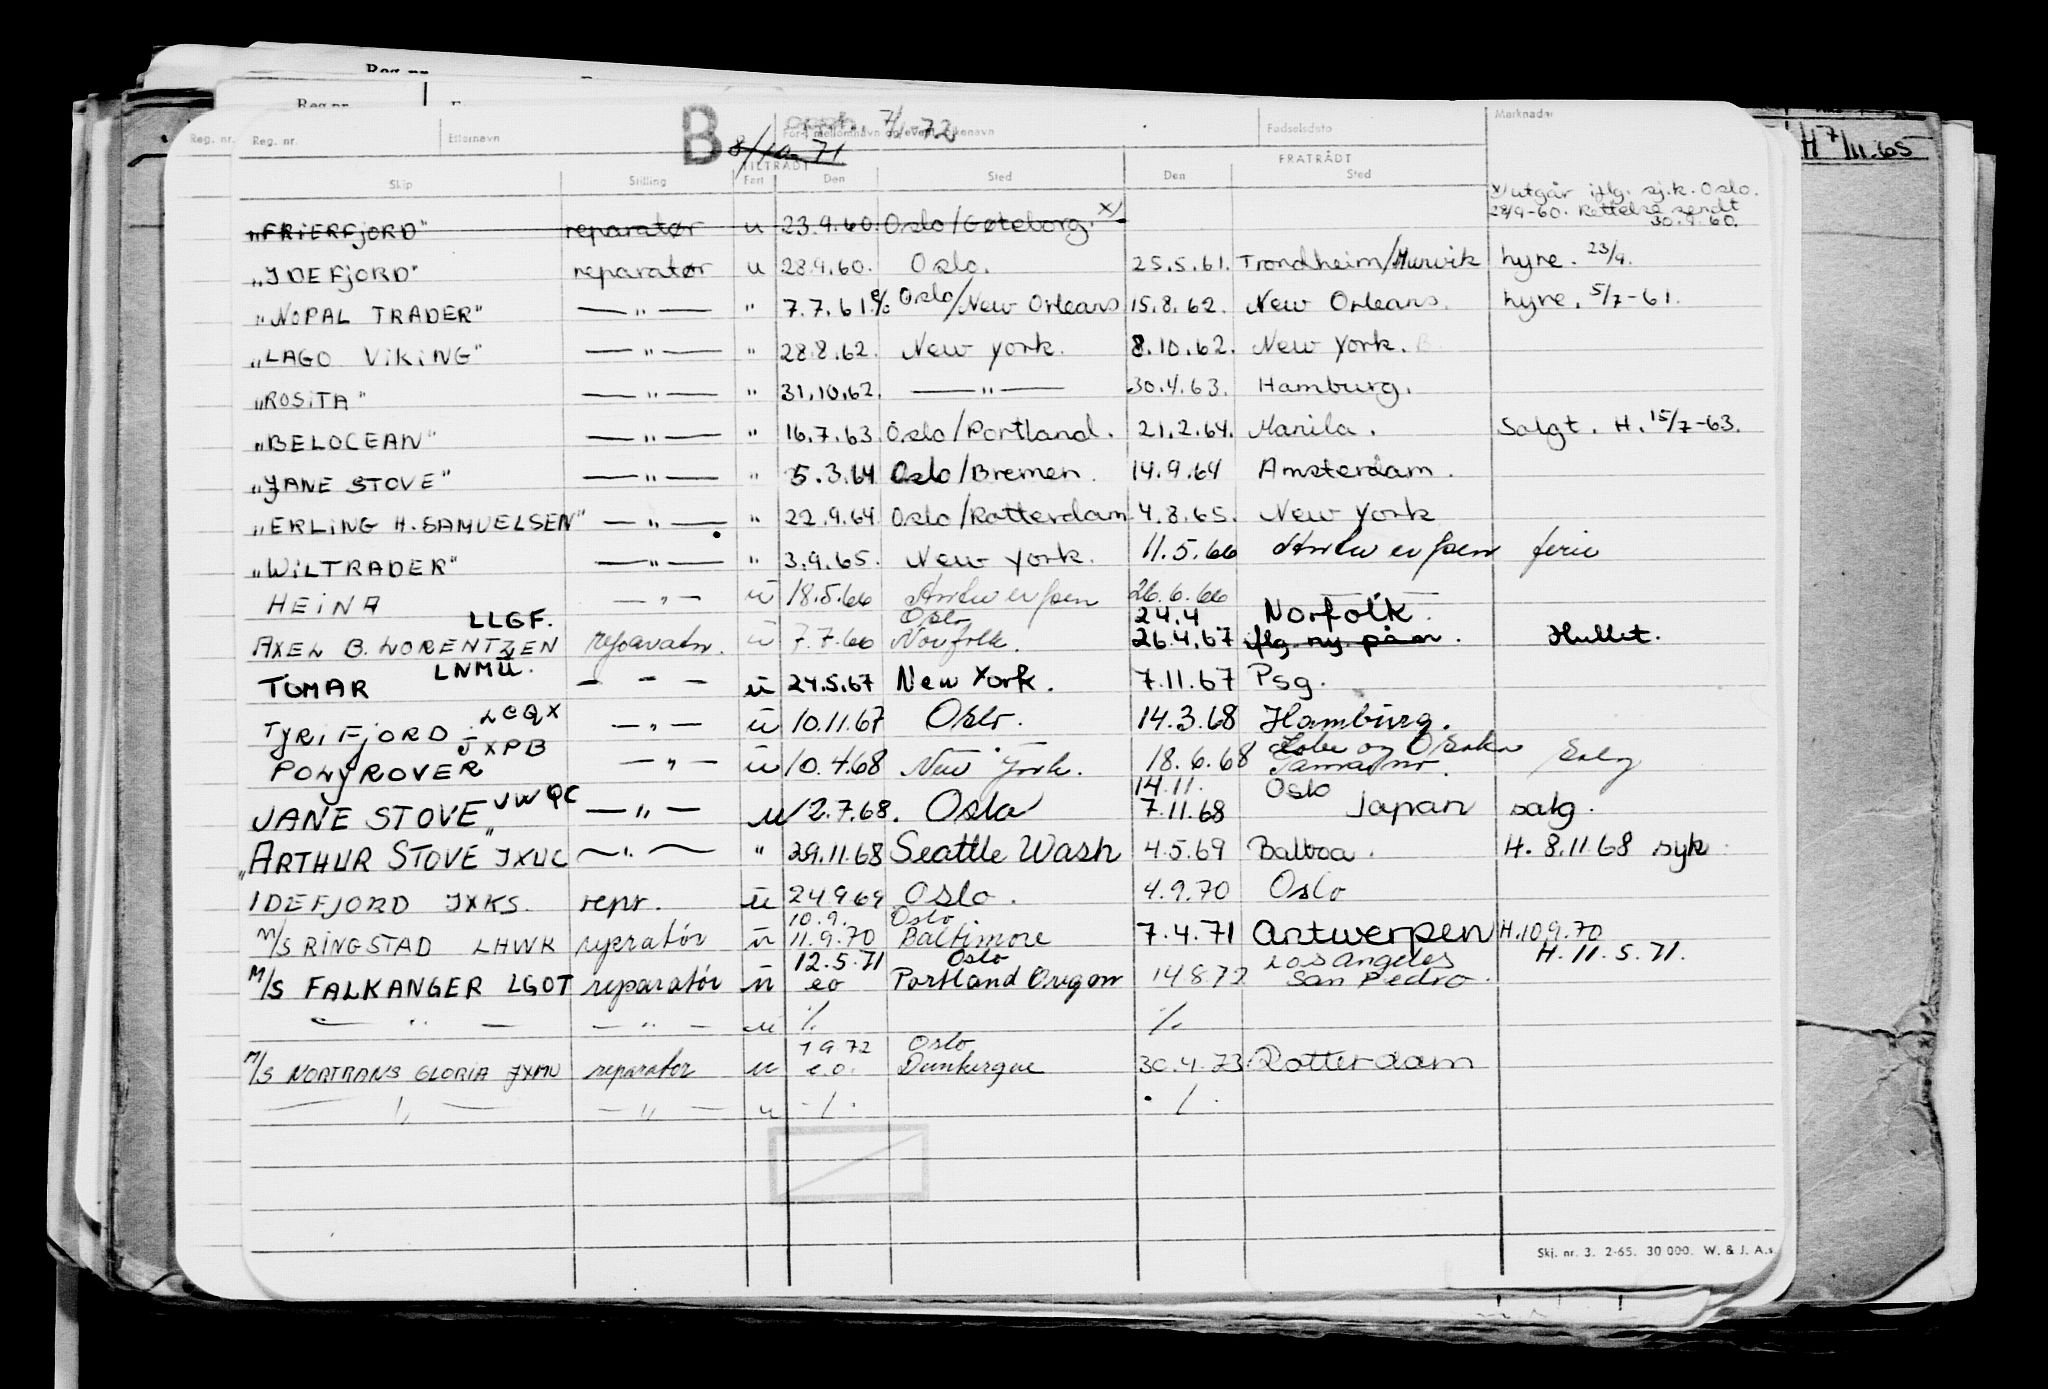 Reg. nr.
Reg. nr.
Reg. nr. Reg. nr. Etternavn B 8/10-71 7/1-72 Fødselsdato Merknader H 7/11.65
TILTRÅDT FRATRÅDT
Skip Stilling Fart Den Sted Den Sted
x) utgår iflg. sj.k. Oslo.
28/9-60. Rettelse sendt
30.9.60.
"FRIERFJORD" reparatør u 23.9.60. Oslo/Gøteborg. x)
"IDEFJORD" reparatør u 28.9.60. Oslo. 25.5.61. Trondheim/Murvik hyre. 23/9.
"NOPAL TRADER" — " — " 7.7.61 % Oslo/New Orleans 15.8.62. New Orleans. hyre. 5/7-61.
"LAGO VIKING" — " — " 28.8.62. New York. 8.10.62. New York.
"ROSITA" — " — " 31.10.62. — " — 30.4.63. Hamburg.
"BELOCEAN" — " — " 16.7.63 Oslo/Portland. 21.2.64. Manila. Salgt. H. 15/7-63.
"JANE STOVE" — " — " 5.3.64 Oslo/Bremen. 14.9.64 Amsterdam.
"ERLING H. SAMUELSEN" — " — " 22.9.64 Oslo/Rotterdam 4.8.65. New York
"WILTRADER" — " — " 3.9.65. New York. 11.5.66 Antwerpen ferie
HEINA — " — u 18.5.66 Antwerpen 26.6.66 — " —
LLGF. Oslo 24.4 Norfolk.
AXEL B. LORENTZEN reparatør. u 7.7.66 Norfolk. 26.4.67 iflg. ny. påm. Hullet.
LNMU.
TOMAR — " — u 24.5.67 New York. 7.11.67 Psg.
LCQX
TYRIFJORD — " — u 10.11.67 Oslo. 14.3.68 Hamburg.
JXPB Kobe og Osaka
POLYROVER — " — u 10.4.68 New York. 18.6.68
14.11. Oslo
JANE STOVE JWQC — " — u 2.7.68. Oslo 7.11.68 Japan salg.
"ARTHUR STOVE JXUC — " — " 29.11.68 Seattle Wash 4.5.69 Balboa. H. 8.11.68 syk.
IDEFJORD JXKS. repr. u 24969 Oslo. 4.9.70 Oslo
10.9. Oslo
M/S RINGSTAD LHWK reperatör u 11.9.70 Baltimore 7.4.71 Antwerpen H.10970
12.5.71 Oslo Los Angeles H. 11.5.71.
M/S FALKANGER LGOT reparatör u eo Portland Oregon 14.8.72 San Pedro.
— " — — " — u %. %.
1972 Oslo
M/S NORTRANS GLORIA JXMU reparatør u e.o. Dunkerque 30.4.73 Rotterdam
— " — — " — u -/. ./.
Skj. nr. 3. 2-65. 30 000. W. & J. A.s